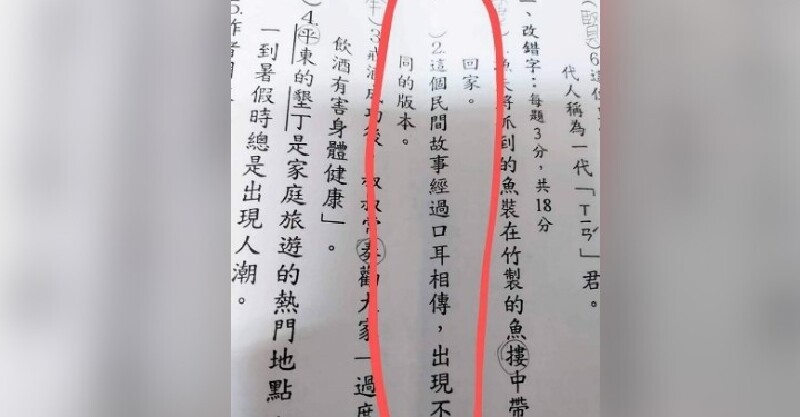 (賢)6.這位
代人稱為一代「ㄒㄧㄢˊ」君。
、改錯字：每題3分，共18分
漁夫將抓到的魚裝在竹製的魚摟中帶
回家。
)2.這個民間故事經過口耳相傳，出現不
同的版本。
)3.戒酒成功後，叔叔常奏勸大家「過度
飲酒有害身體健康」。
)4.平東的墾丁是家庭旅遊的熱門地點
一到暑假時總是出現人潮。
5.作者